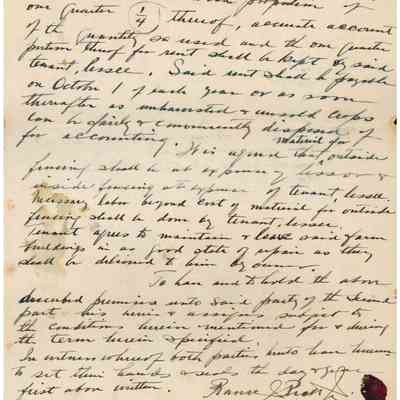 proportion of
one Quarter (1/4) thereof, accurate account
of the Quantity so used and the one Quarter
portion thereof for rent shall be kept by said
tenant, lessee. Said rent shall be payable
on October 1 of each year or as soon
thereafter as unharvested & unsold crops
can be fairly & conveniently disposed of
for accounting. It is agreed that material for outside
fencing shall be at expense of lessor &
inside fencing at expense of tenant, lessee.
Necessary labor beyond cost of material for outside
fencing shall be done by tenant, lessee.
Tenant agrees to maintain & leave said farm
buildings in as good state of repair as they
shall be delivered to him by owner.
To have and to hold the above
described premises unto said party of the second
part his heirs & assigns subject to
the conditions herein mentioned for & during
the term herein specified.
In witness whereof both parties hereto have hereunto
to set their hands & seals the day & year
first above written.